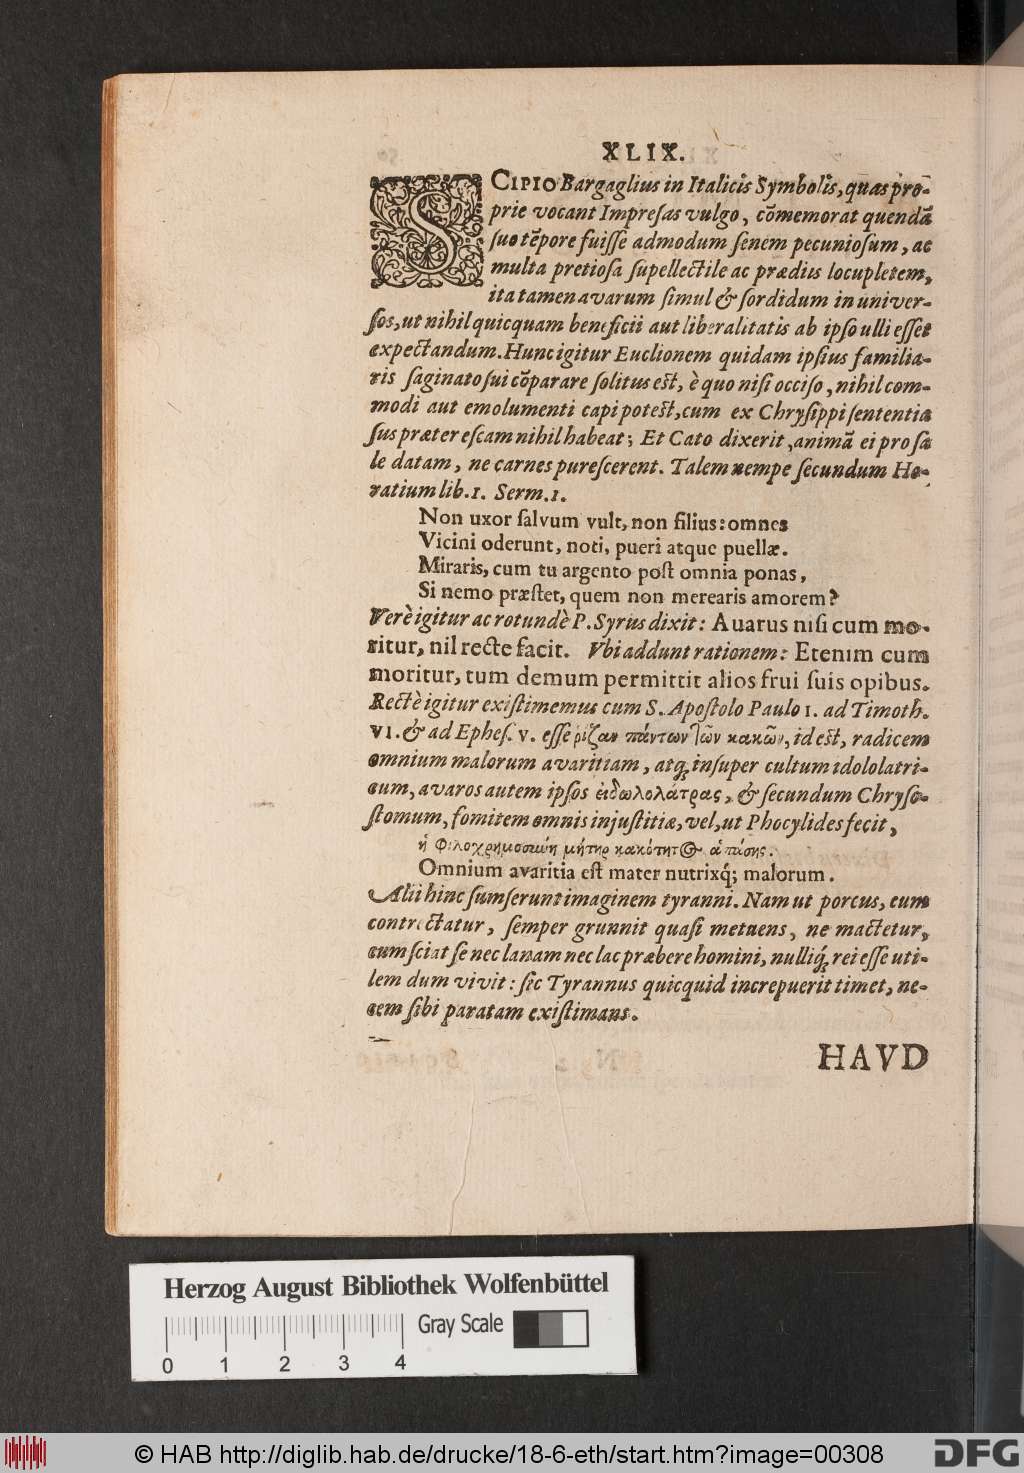 XLIX.
SCIPIO Bargaglius in Italicis Symbolis, quas pro-
prie vocant Impreſas vulgo, cõmemorat quendã
ſuo tẽpore fuiſſe admodum ſenem pecunioſum, ac
multa pretioſa ſupellectile ac prædiis locupletem,
ita tamen avarum ſimul & ſordidum in univer-
ſos, ut nihil quicquam beneficii aut liberalitatis ab ipſo ulli eſſet
expectandum. Hunc igitur Euclionem quidam ipſius familia-
ris ſaginato ſui cõparare ſolitus est, è quo niſi occiſo, nihil com-
modi aut emolumenti capi potest, cum ex Chryſippi ſententia
ſus præter eſcam nihil habeat; Et Cato dixerit, animã ei pro ſa
le datam, ne carnes pureſcerent. Talem nempe ſecundum Ho-
ratium lib. 1. Serm. 1.
Non uxor ſalvum vult, non filius: omnes
Vicini oderunt, noti, pueri atque puellæ.
Miraris, cum tu argento poſt omnia ponas,
Si nemo præſtet, quem non merearis amorem?
Verè igitur ac rotundè P. Syrus dixit: Avarus niſi cum mo-
ritur, nil recte facit. Vbi addunt rationem: Etenim cum
moritur, tum demum permittit alios frui ſuis opibus.
Rectè igitur exiſtimemus cum S. Apoſtolo Paulo 1. ad Timoth.
VI. & ad Epheſ. V. eſſe ῥίζαν πάντων τῶν κακῶν, id eſt, radicem
omnium malorum avaritiam, atq; inſuper cultum idololatri-
cum, avaros autem ipſos εἰδωλολάτρας, & ſecundum Chryſo-
ſtomum, fomitem omnis injuſtitiæ, vel, ut Phocylides fecit,
ἡ φιλοχρημοσύνη μήτηρ κακότητος ἁπάσης.
Omnium avaritia eſt mater nutrixq́; malorum.
Alii hinc ſumſerunt imaginem tyranni. Nam ut porcus, cum
contrectatur, ſemper grunnit quaſi metuens, ne mactetur,
cum ſciat ſe nec lanam nec lac præbere homini, nulliq́; rei eſſe uti-
lem dum vivit: ſic Tyrannus quicquid increpuerit timet, ne-
cem ſibi paratam exiſtimans.
HAVD
Herzog August Bibliothek Wolfenbüttel
Gray Scale
0 1 2 3 4
© HAB http://diglib.hab.de/drucke/18-6-eth/start.htm?image=00308
DFG